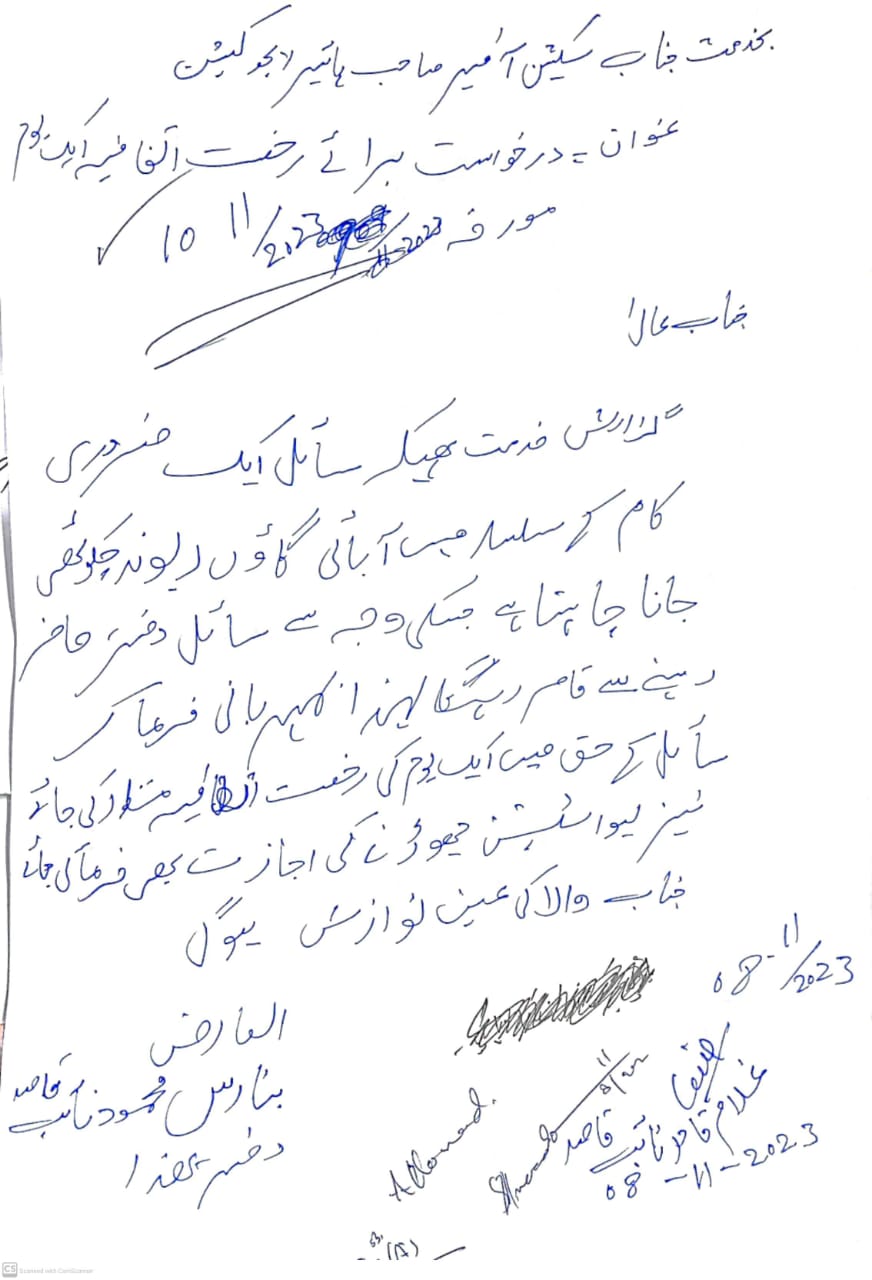 بخدمت جناب سیکشن آفیسر صاحب ہائیر ایجوکیشن
عنوان = درخواست برائے رخصت اتفاقیہ ایک یوم
مورخہ 10 11/2023
جناب عالیٰ
گزارش خدمت ہیکہ سائل ایک ضروری
کام کے سلسلہ میں آبائی گاؤں
جانا چاہتا ہے جسکی وجہ سے سائل دفتر حاضر
رہنے سے قاصر رہیگا لہذا مہربانی فرما کر
سائل کے حق میں ایک یوم کی رخصت اتفاقیہ منظور کی جائے
نیز لیو اسٹیشن چھوڑنے کی اجازت بھی فرمائی جائے
جناب والا کی عین نوازش ہوگی
08-11/2023
العارض
بنارس محمود نائب قاصد
دفتر ہذا
Allowed.
غلام قادر نائب قاصد
08-11-2023
CS Scanned with CamScanner